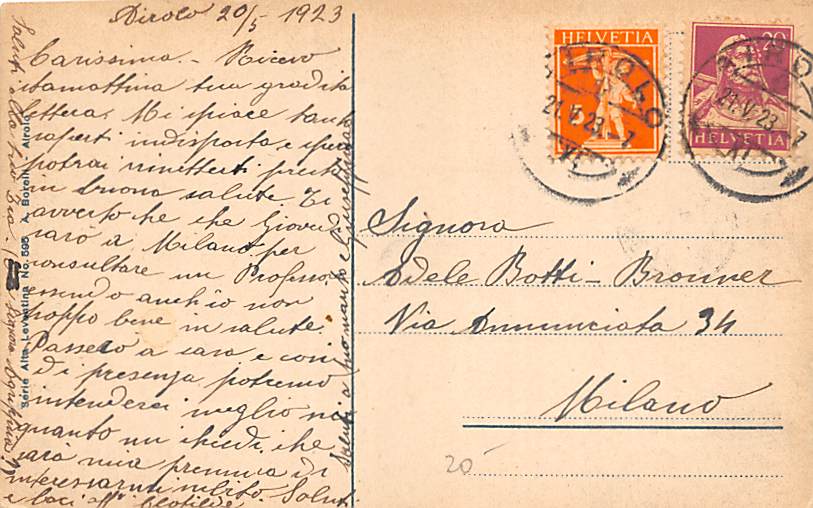 Airolo 20/5 1923
Carissima. - Ricevo
stamattina tua gradita
lettera. Mi spiace tanto
saperti indisposta e spero
potrai rimetterti presto
in buona salute. Ti
avverto che che Giovedì
sarò a Milano per
consultare un Profess.
essendo anch'io non
troppo bene in salute
Passerò a casa e così
di presenza potremo
intenderci meglio in
quanto mi chiedi, che
sarà mia premura di
interessarmi subito. Saluti
e baci aff Clotilde
Saluti a tuo marito e Giuseppina
Saluti alla tua
Serie Alta Leventina No. 595 A. Borelli - Airolo
HELVETIA
5
20
HELVETIA
AIROLO
21.V.23.-7
AIROLO
21.V.23.-7
Signora
Adele Botti-Bronner
Via Annunciata 34
Milano
20-